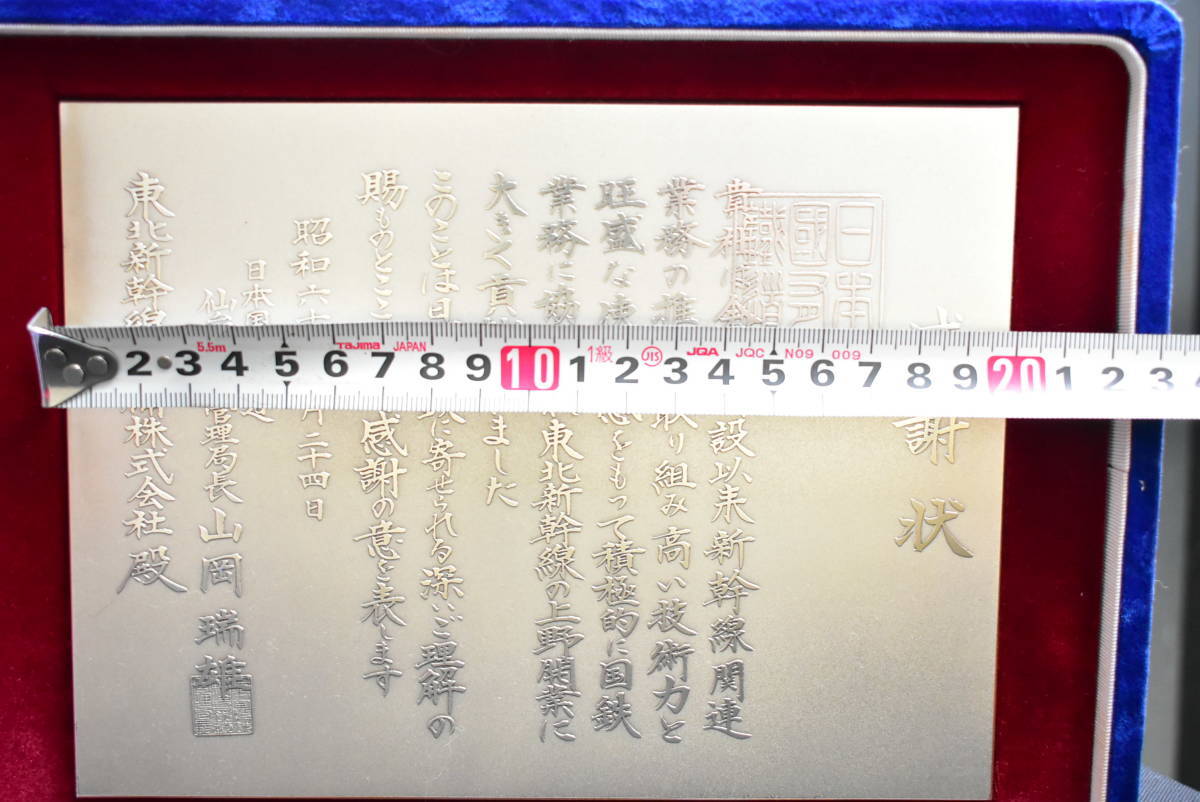 感謝状
日本國有鐵道
貴社は 設以来新幹線関連
業務の推 取り組み高い技術力と
旺盛な をもって積極的に国鉄
業務に 東北新幹線の上野開業に
大きく貢 ました
このことは日 に寄せられる深いご理解の
賜ものとこ 感謝の意を表します
昭和六十 月二十四日
日本国 道
仙 管理局長 山岡瑞雄
東北新幹線 株式会社殿
2 3 4 5 6 7 8 9 10 1 2 3 4 5 6 7 8 9 20 1 2 3 4
5.5m Tajima JAPAN 1級 JIS JQA JQC N09 009